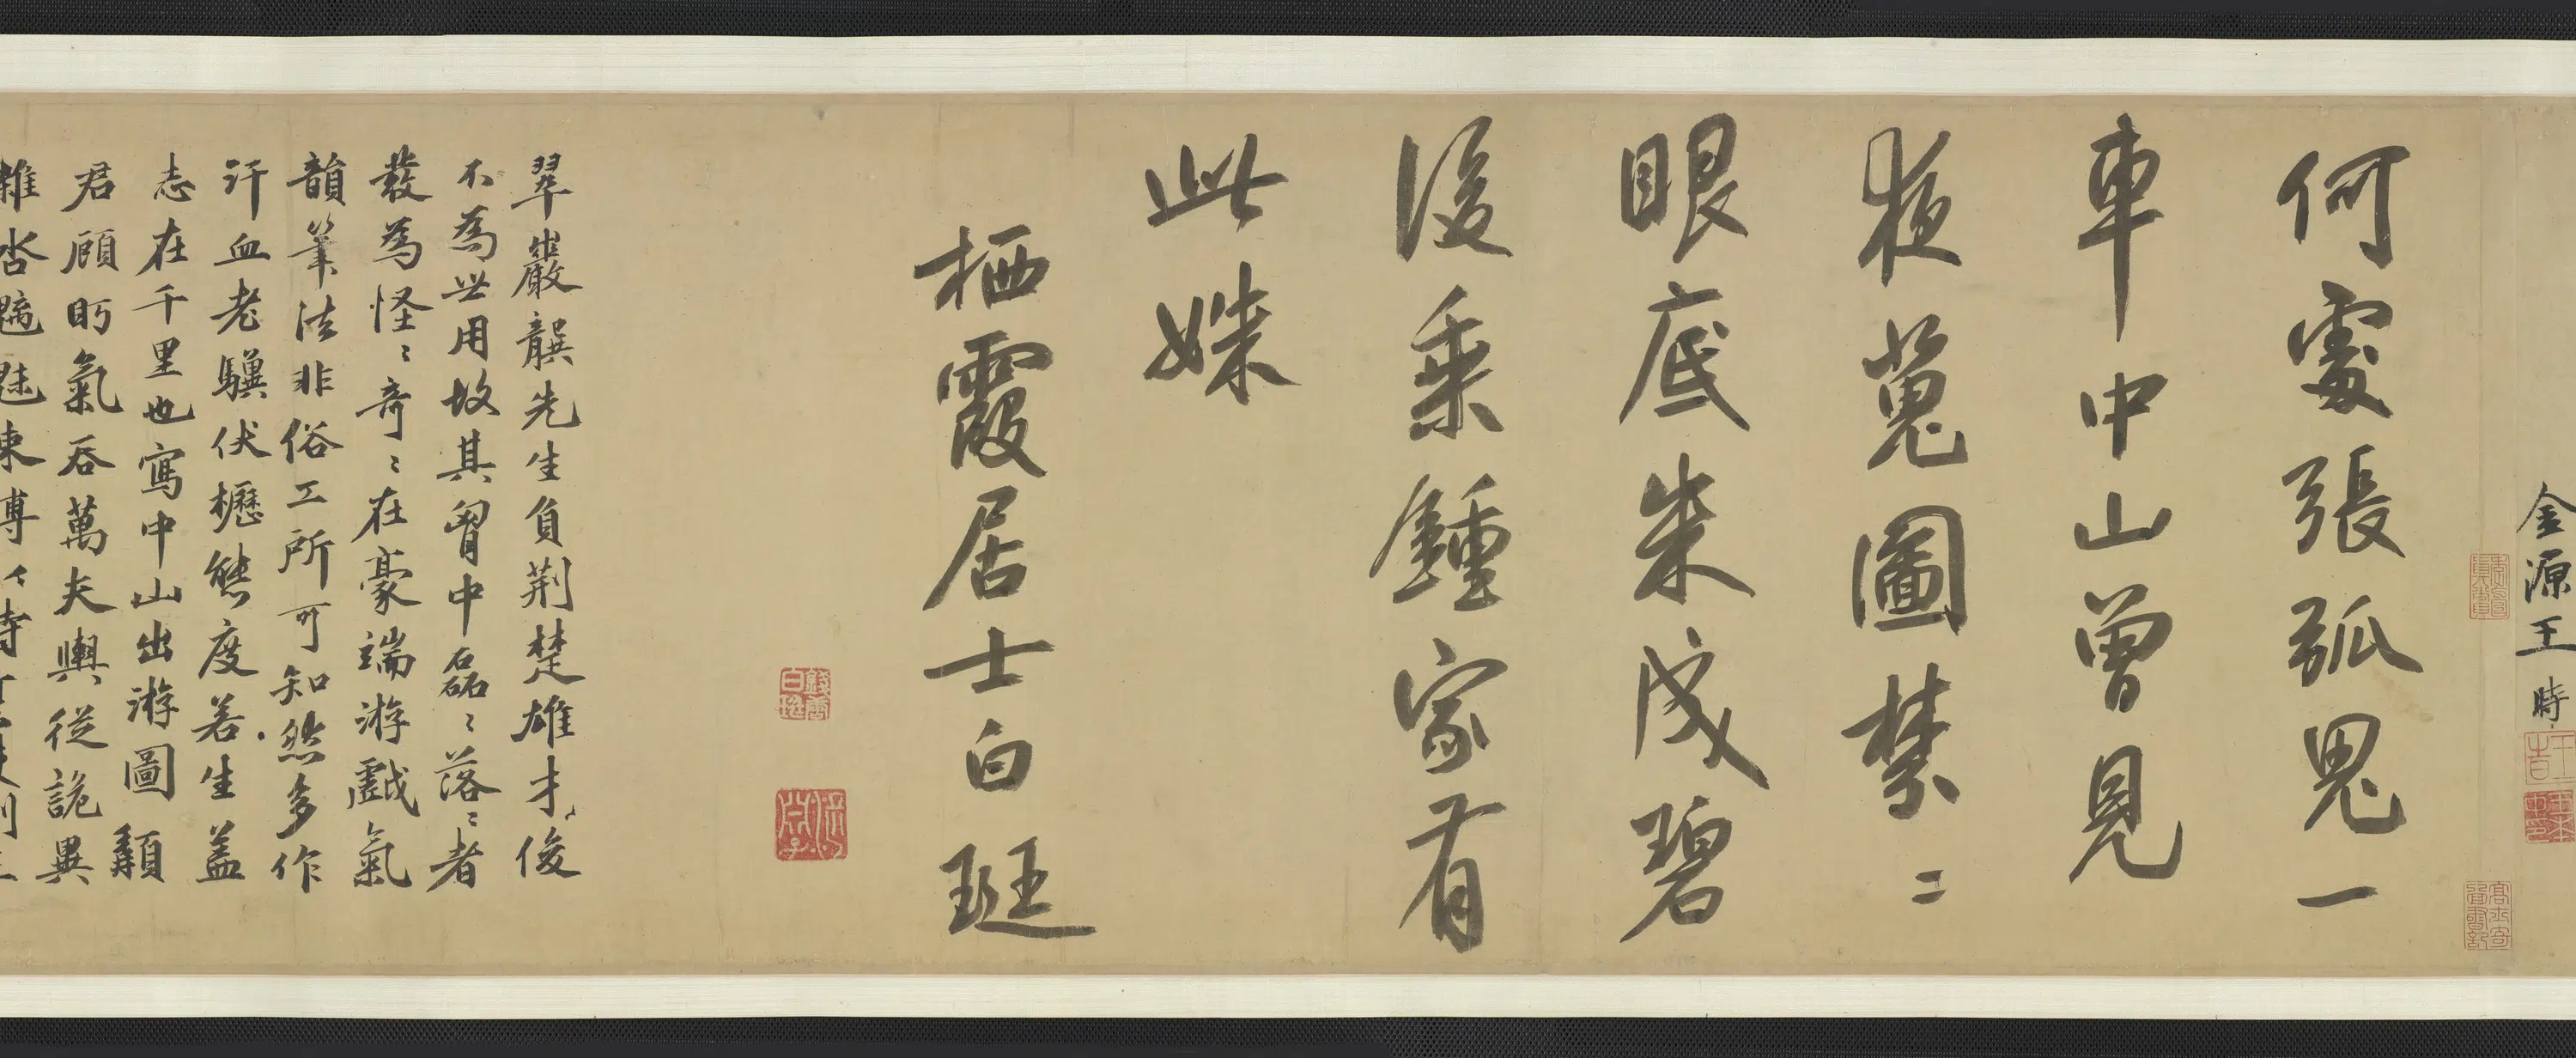 金源王時
何處張弧鬼一
車中山曾見
夜蒐圖禁〻
眼底朱成碧
後乘鍾家有
此姝
栖霞居士白珽
翠巖龔先生負荆楚雄才俊
不為世用故其胷中磊〻落〻者
發為怪〻奇〻在豪端游戲氣
韻筆法非俗工所可知然多作
汗血老驥伏櫪態度若生盖
志在千里也寫中山出游圖纇
君顧盻氣吞萬夫輿從詭異
雜沓魑魅束